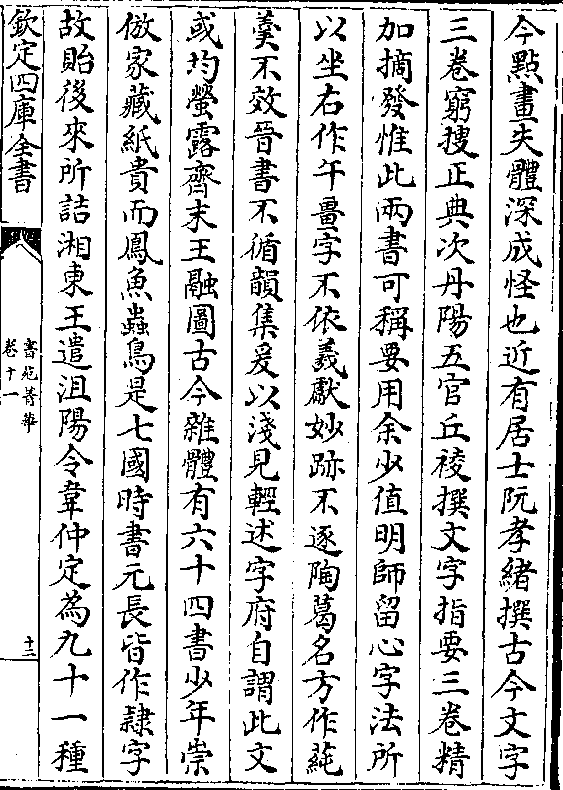 今點畫失體深成怪也近有居士阮孝緒撰古今文字
三卷窮搜正典次丹陽五官丘裬撰文字指要三卷精
加摘發惟此兩書可稱要用余少值明師留心字法所
以坐右作午畺字不依義獻妙跡不逐陶葛名方作蒓
羮不效晉書不循韻集爰以淺見輕述字府自謂此文
或均螢露齊末王融圖古今雜體有六十四書少年崇
倣家藏紙貴而鳳魚蟲鳥是七國時書元長皆作隷字
故貽後來所詰湘東王遣沮陽令韋仲定為九十一種
欽定四庫全書
書苑菁華
卷十一
十三